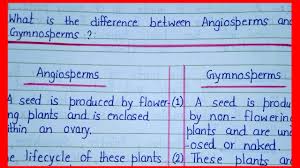 What is the difference between Angiosperms and
Gymnosperms ?:
Angiosperms
Gymnosperms
A seed is produced by flower-
ing plants and is enclosed
within an ovary.
(1) A seed is produ
by non-flowering
plants and are un
osed or naked.
e lifecycle of these plants
(2) These plants ar